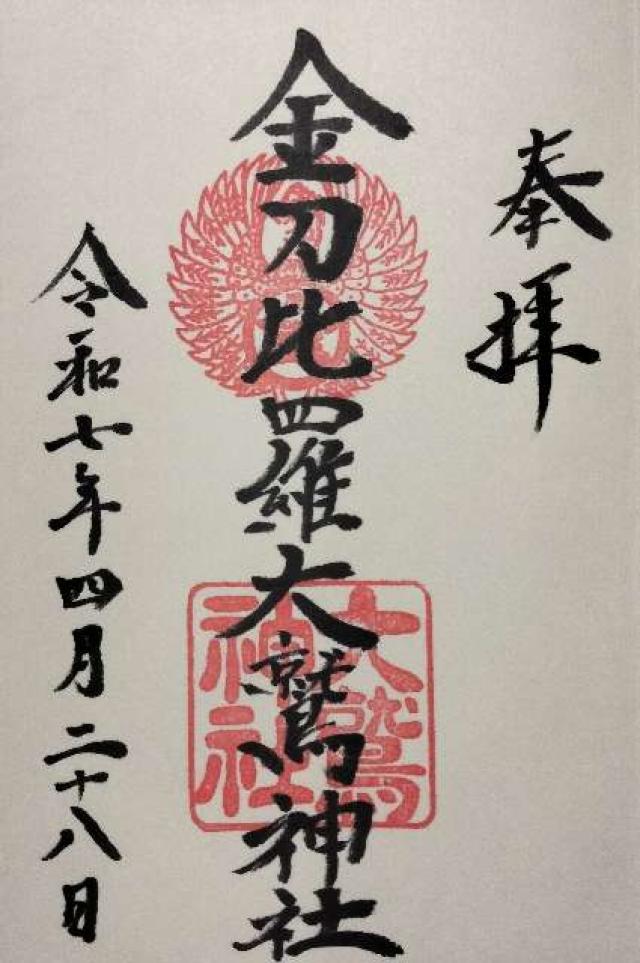 奉拝
金刀比羅大鷲神社
大鷲
神社
令和七年四月二十八日